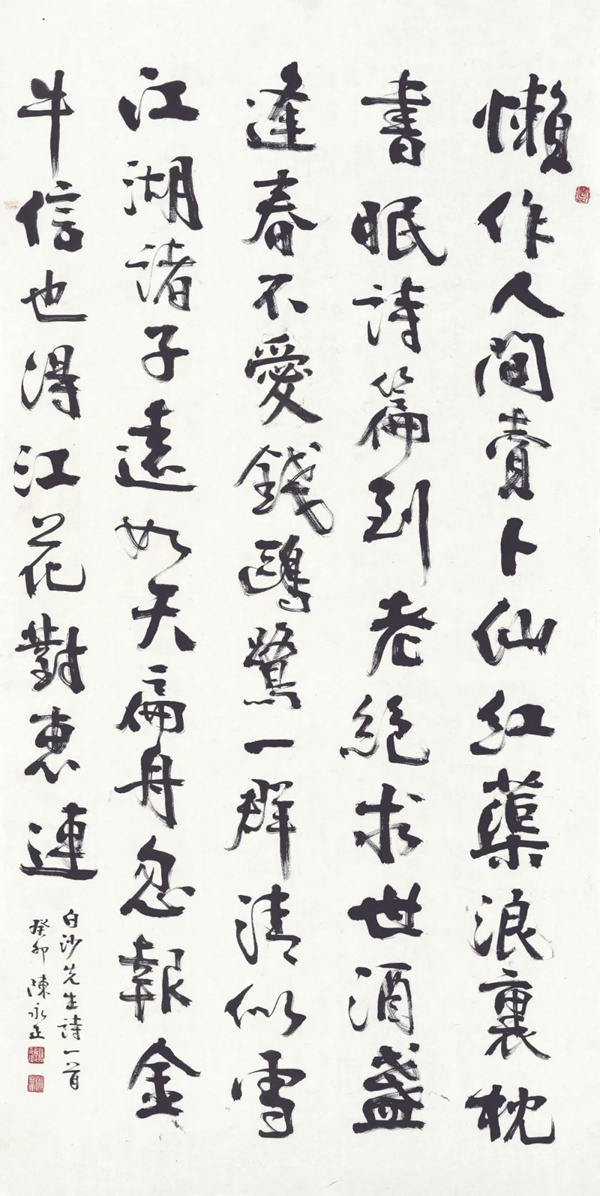 懶作人間賣卜仙紅藥浪裏枕
書眠詩篇到老絕求世酒盞
逢春不愛錢鷗鷺一群清似雪
江湖諸子遠如天扁舟忽報金
牛信也得江花對惠連
白沙先生詩一首
癸卯陳永正